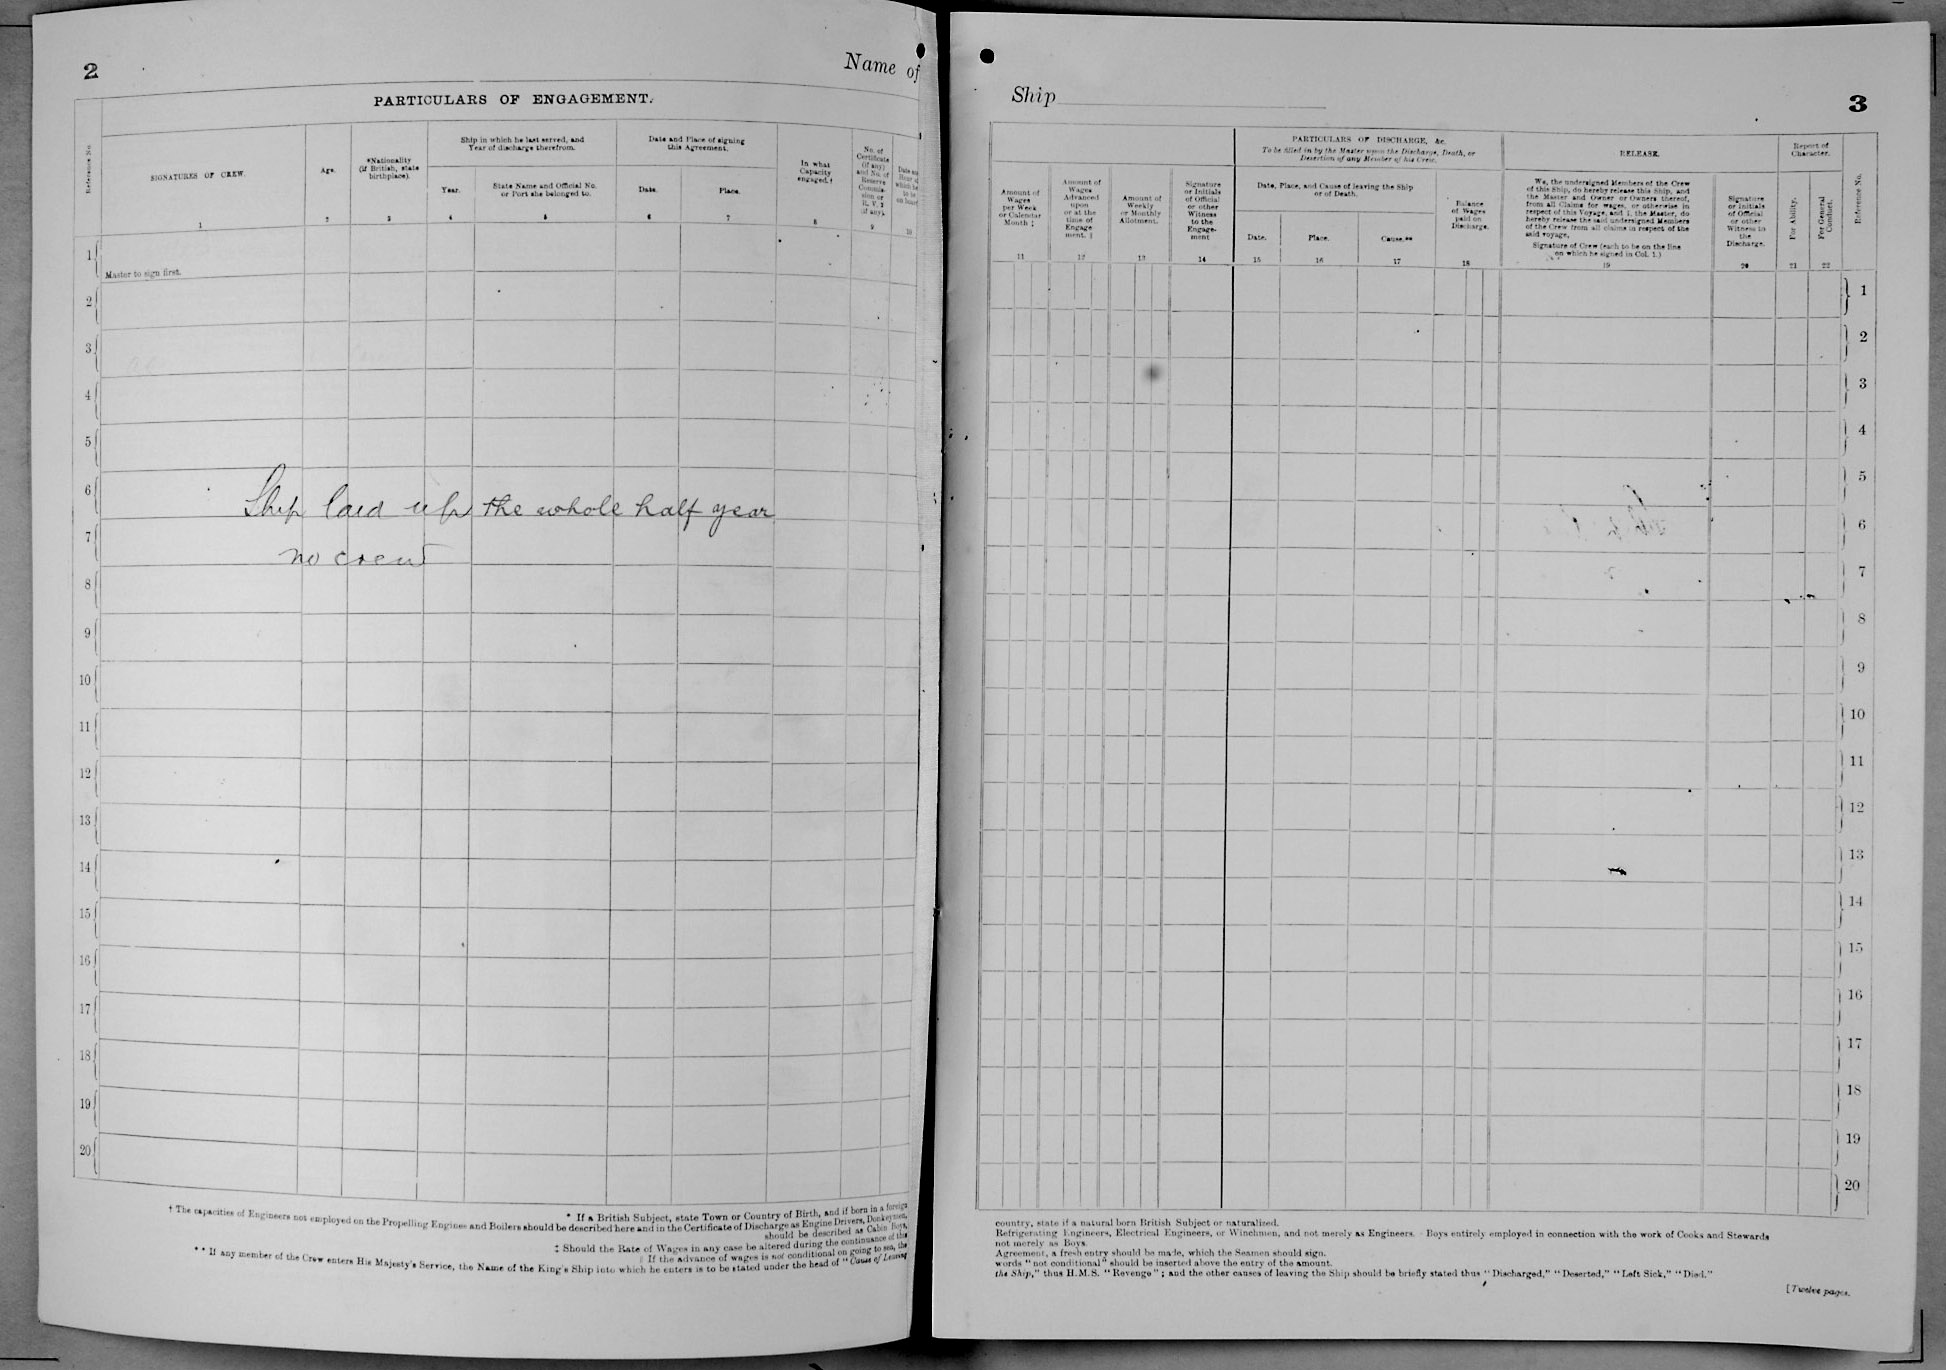 2
Name of
PARTICULARS OF ENGAGEMENT.
Reference No.
SIGNATURES OF CREW.
1
Age.
2
*Nationality
(if British, state
birthplace).
3
Ship in which he last served, and
Year of discharge therefrom.
Year.
4
State Name and Official No.
or Port she belonged to.
5
Date and Place of signing
this Agreement.
Date.
6
Place.
7
In what
Capacity
engaged.†
8
No. of
Certificate
(if any)
and No. of
Reserve
Commis-
sion or
R. V. 2
(if any).
9
10
1
Master to sign first.
2
3
4
5
6
Ship laid up the whole half year
7
no crew
8
9
10
11
12
13
14
15
16
17
18
19
20
* If a British Subject, state Town or Country of Birth, and if born in a foreign
† The capacities of Engineers not employed on the Propelling Engines and Boilers should be described here and in the Certificate of Discharge as Engine Drivers, Donkeymen,
should be described as Cabin Boys,
‡ Should the Rate of Wages in any case be altered during the continuance of this
|| If the advance of wages is not conditional on going to sea, the
** If any member of the Crew enters His Majesty's Service, the Name of the King's Ship into which he enters is to be stated under the head of "Cause of Leaving
Ship
3
Amount of
Wages
per Week
or Calendar
Month ‡
11
Amount of
Wages
Advanced
upon
or at the
time of
Engage
ment. ||
12
Amount of
Weekly
or Monthly
Allotment.
13
Signature
or Initials
of Official
or other
Witness
to the
Engage-
ment
14
PARTICULARS OF DISCHARGE, &c.
To be filled in by the Master upon the Discharge, Death, or
Desertion of any Member of his Crew.
Date, Place, and Cause of leaving the Ship
or of Death.
Date.
15
Place.
16
Cause.**
17
Balance
of Wages
paid on
Discharge.
18
RELEASE.
We, the undersigned Members of the Crew
of this Ship, do hereby release this Ship, and
the Master and Owner or Owners thereof,
from all Claims for wages, or otherwise in
respect of this Voyage, and I, the Master, do
hereby release the said undersigned Members
of the Crew from all claims in respect of the
said voyage.
Signature of Crew (each to be on the line
on which he signed in Col. 1.)
19
Signature
or Initials
of Official
or other
Witness to
the
Discharge.
20
Report of
Character.
For Ability.
21
For General
Conduct.
22
Reference No.
1
2
3
4
5
6
7
8
9
10
11
12
13
14
15
16
17
18
19
20
country, state if a natural born British Subject or naturalized.
Refrigerating Engineers, Electrical Engineers, or Winchmen, and not merely as Engineers. Boys entirely employed in connection with the work of Cooks and Stewards
not merely as Boys.
Agreement, a fresh entry should be made, which the Seamen should sign.
words "not conditional" should be inserted above the entry of the amount.
the Ship," thus H.M.S. "Revenge"; and the other causes of leaving the Ship should be briefly stated thus "Discharged," "Deserted," "Left Sick," "Died."
[Twelve pages.